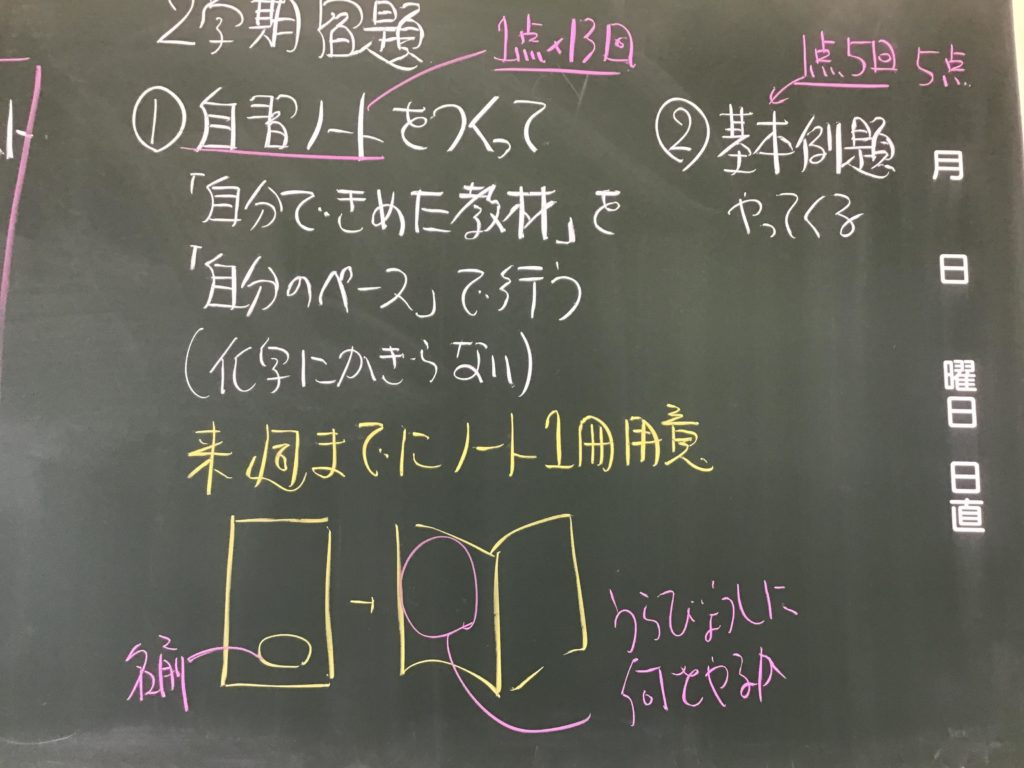 2学期宿題
1点×13回
①自習ノートをつくって
「自分できめた教材」を
「自分のペース」で行う
(化学にかぎらない)
来週までにノート1冊用意
名前
→
うらびょうしに
何をやるか
1点5回 5点
②基本例題
やってくる
月
日
曜日
日直